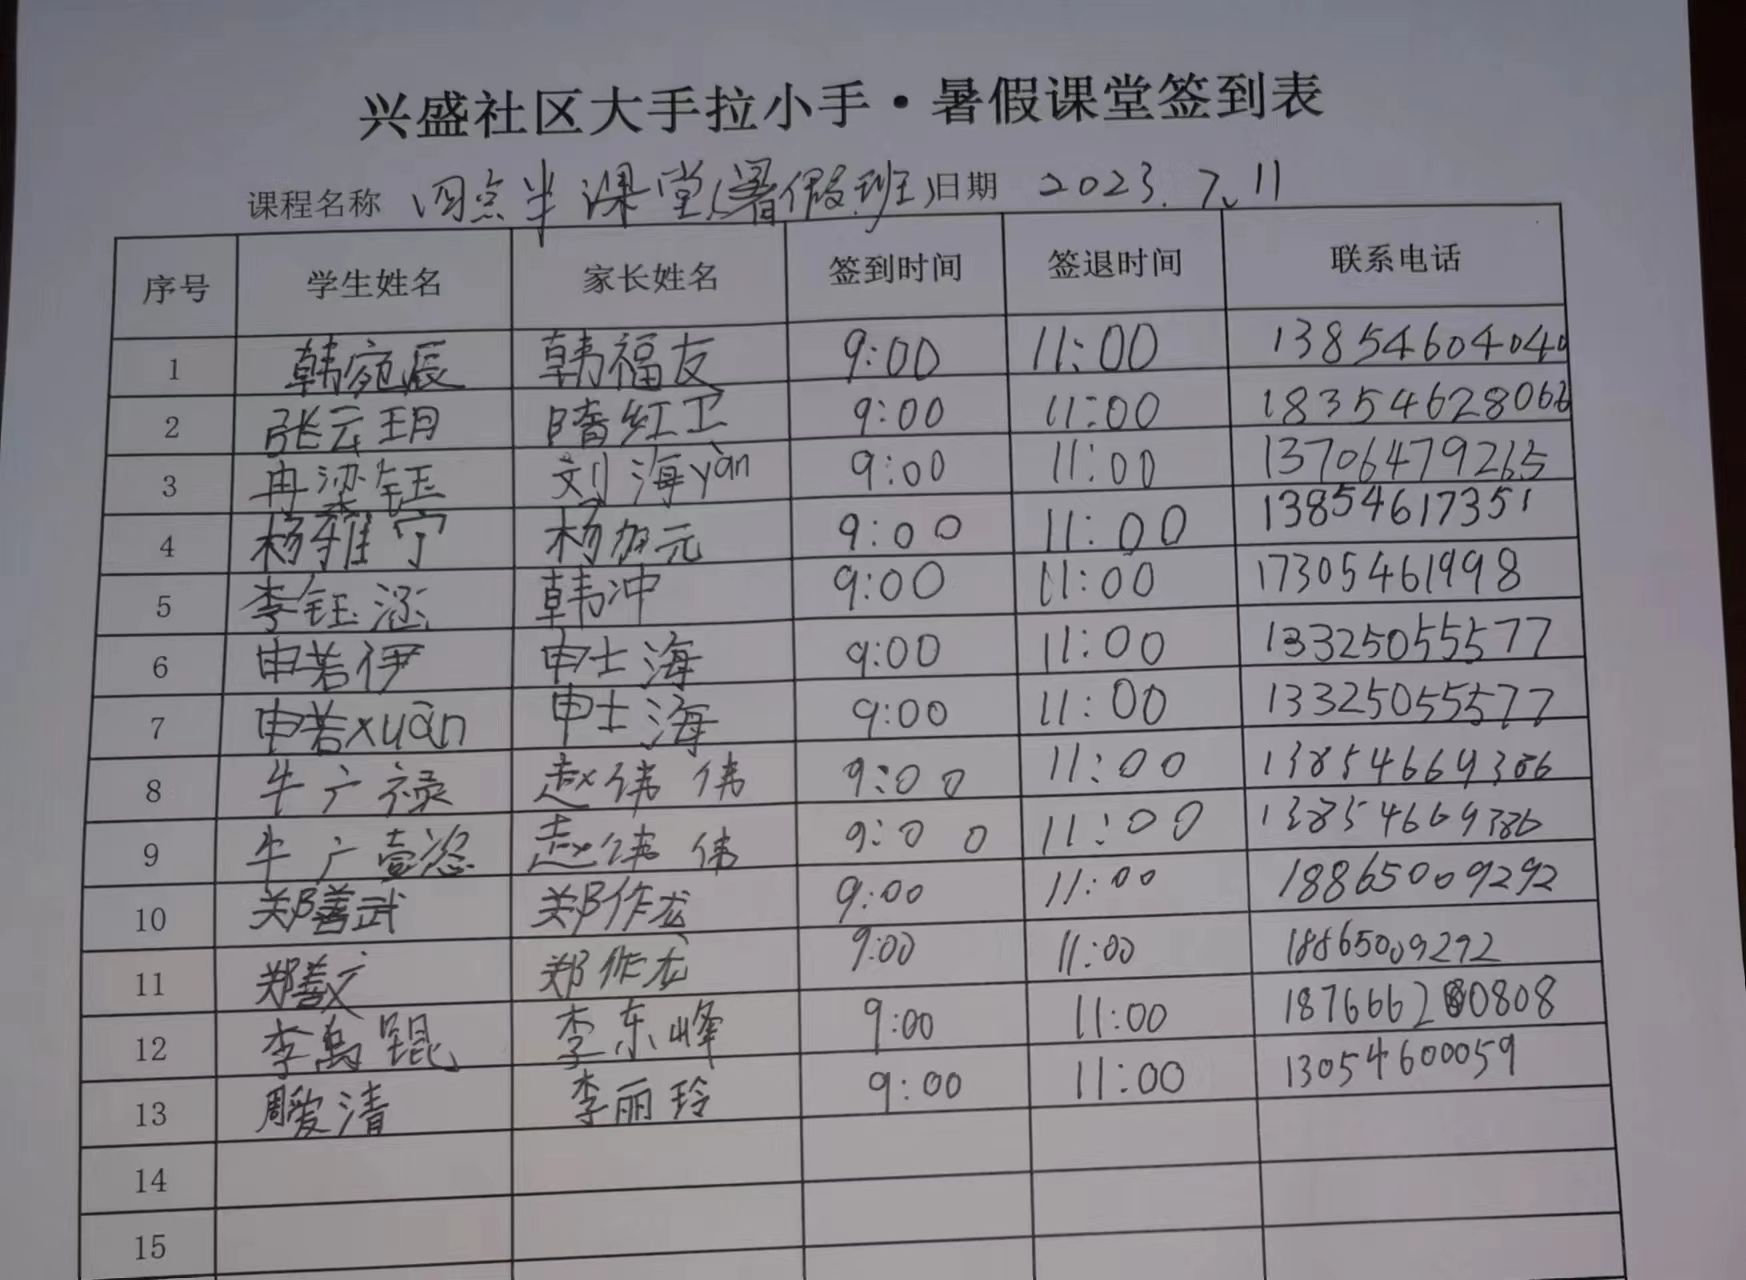 兴盛社区大手拉小手·暑假课堂签到表
课程名称 四点半课堂(暑假班) 日期 2023.7.11
序号 学生姓名 家长姓名 签到时间 签退时间 联系电话
1 韩宛辰 韩福友 9:00 11:00 13854604040
2 张云玥 隋红卫 9:00 11:00 18354628066
3 冉梁钰 刘海yàn 9:00 11:00 13706479265
4 杨雅宁 杨加元 9:00 11:00 13854617351
5 李钰涵 韩冲 9:00 11:00 17305461998
6 申若伊 申士海 9:00 11:00 13325055577
7 申若xuān 申士海 9:00 11:00 13325055577
8 牛广禄 赵伟伟 9:00 11:00 13854669386
9 牛广壹 赵伟伟 9:00 11:00 13854669386
10 郑善武 郑作龙 9:00 11:00 18865009292
11 郑善文 郑作龙 9:00 11:00 18865009292
12 李禹锟 李东峰 9:00 11:00 18766620808
13 周爱清 李丽玲 9:00 11:00 13054600059
14
15